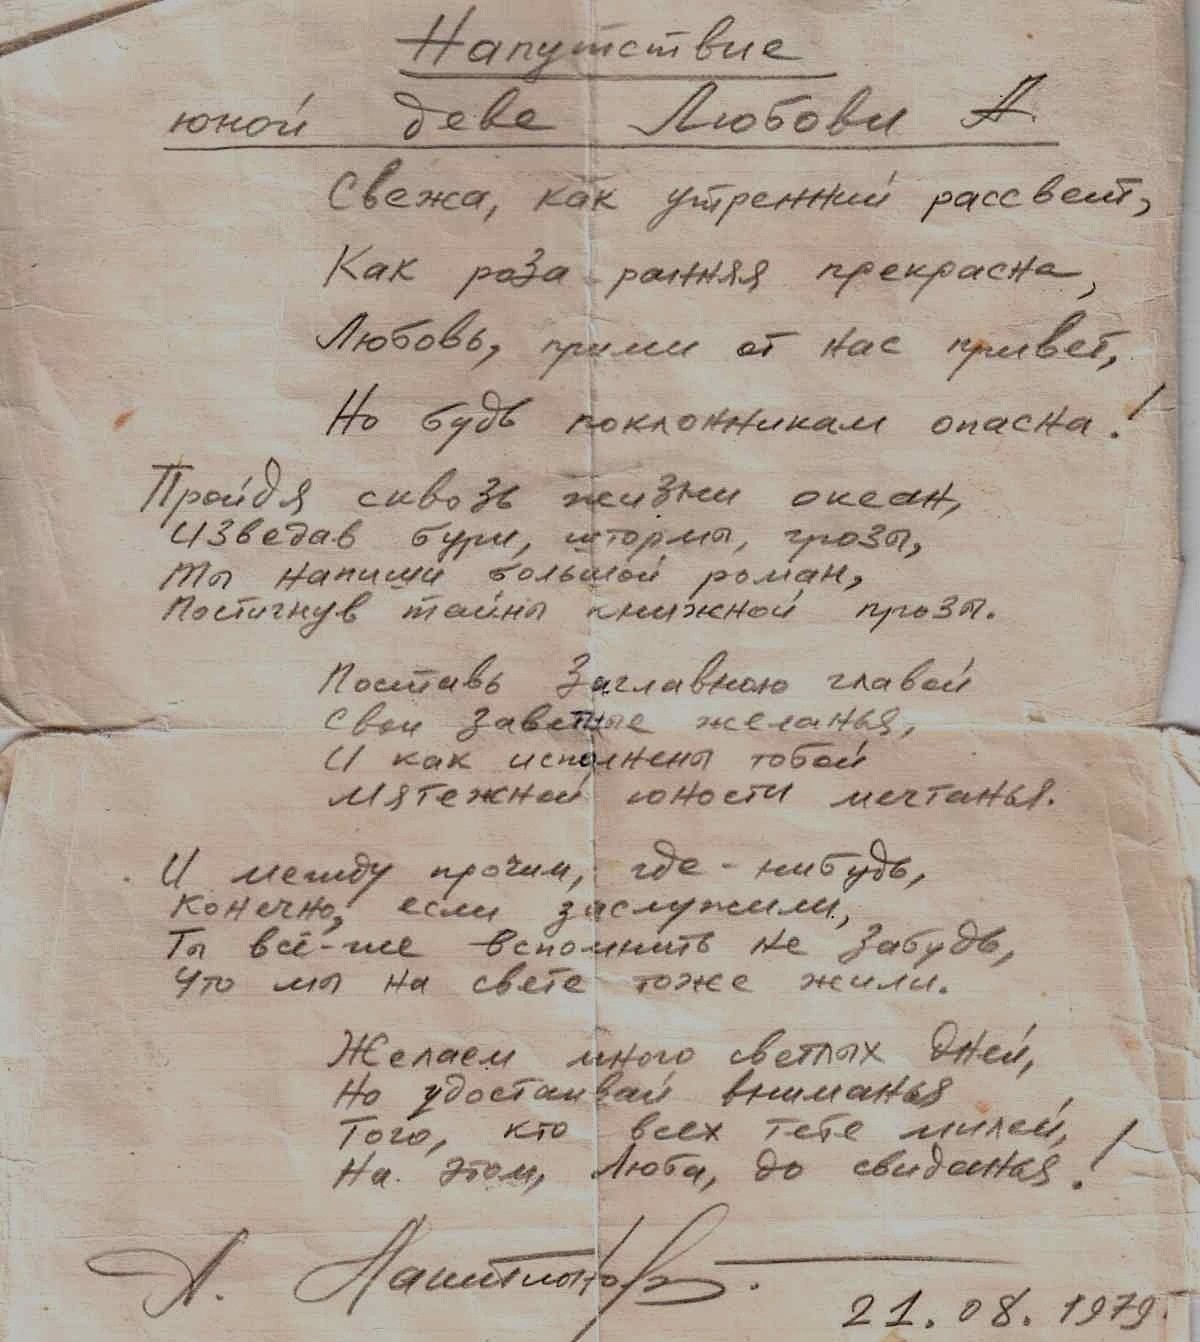 Напутствие
юной деве Любови А.
Свежа, как утренний рассвет,
Как роза ранняя прекрасна,
Любовь, прими от нас привет,
Но будь поклонникам опасна!
Пройдя сквозь жизни океан,
Изведав бури, штормы, грозы,
Ты напиши большой роман,
Постигнув тайны книжной прозы.
Поставь Заглавною главой
Свои заветные желанья,
И как исполнены тобой
Мятежной юности мечтанья.
И между прочим, где-нибудь,
Конечно, если заслужили,
Ты всё-же вспомнить не забудь,
Что мы на свете тоже жили.
Желаем много светлых дней,
Но удостаивай вниманья
Того, кто всех тебе милей,
На этом, Люба, до свиданья!
А.
21.08.1979.